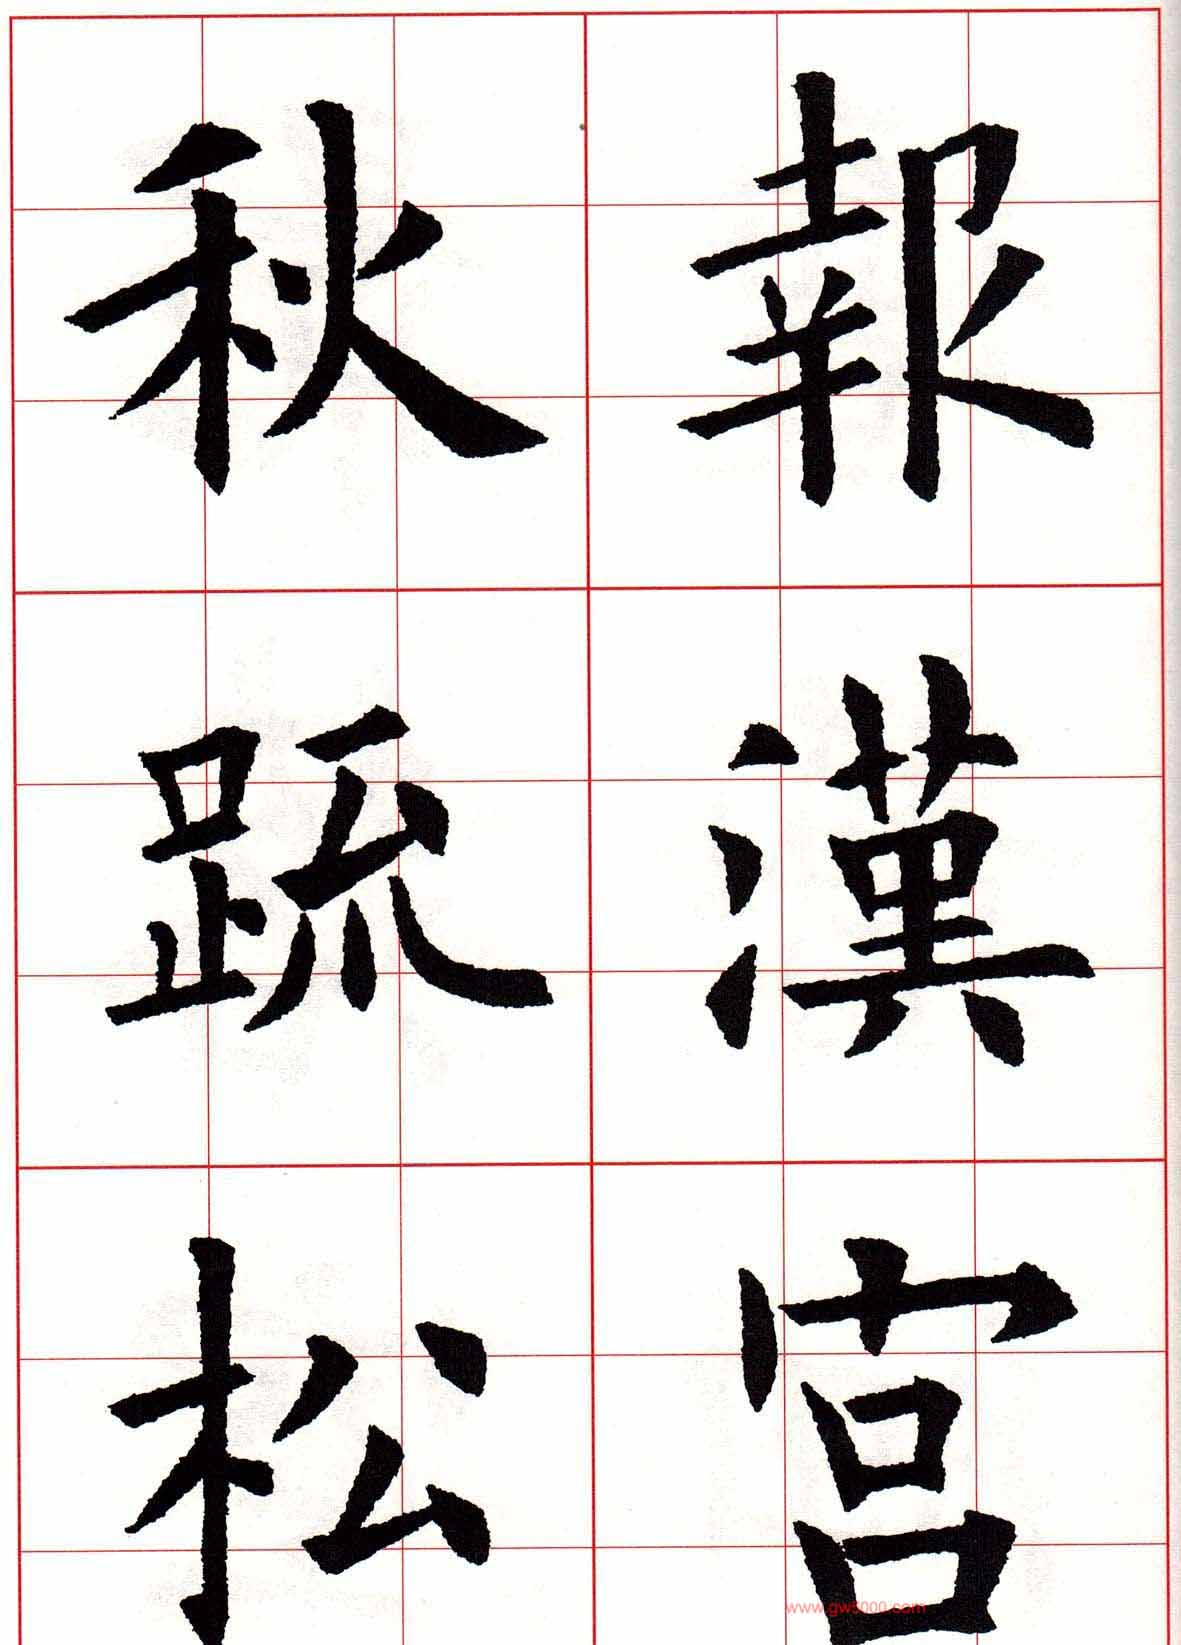 報漢宮
秋䟽松
www.gw5000.com